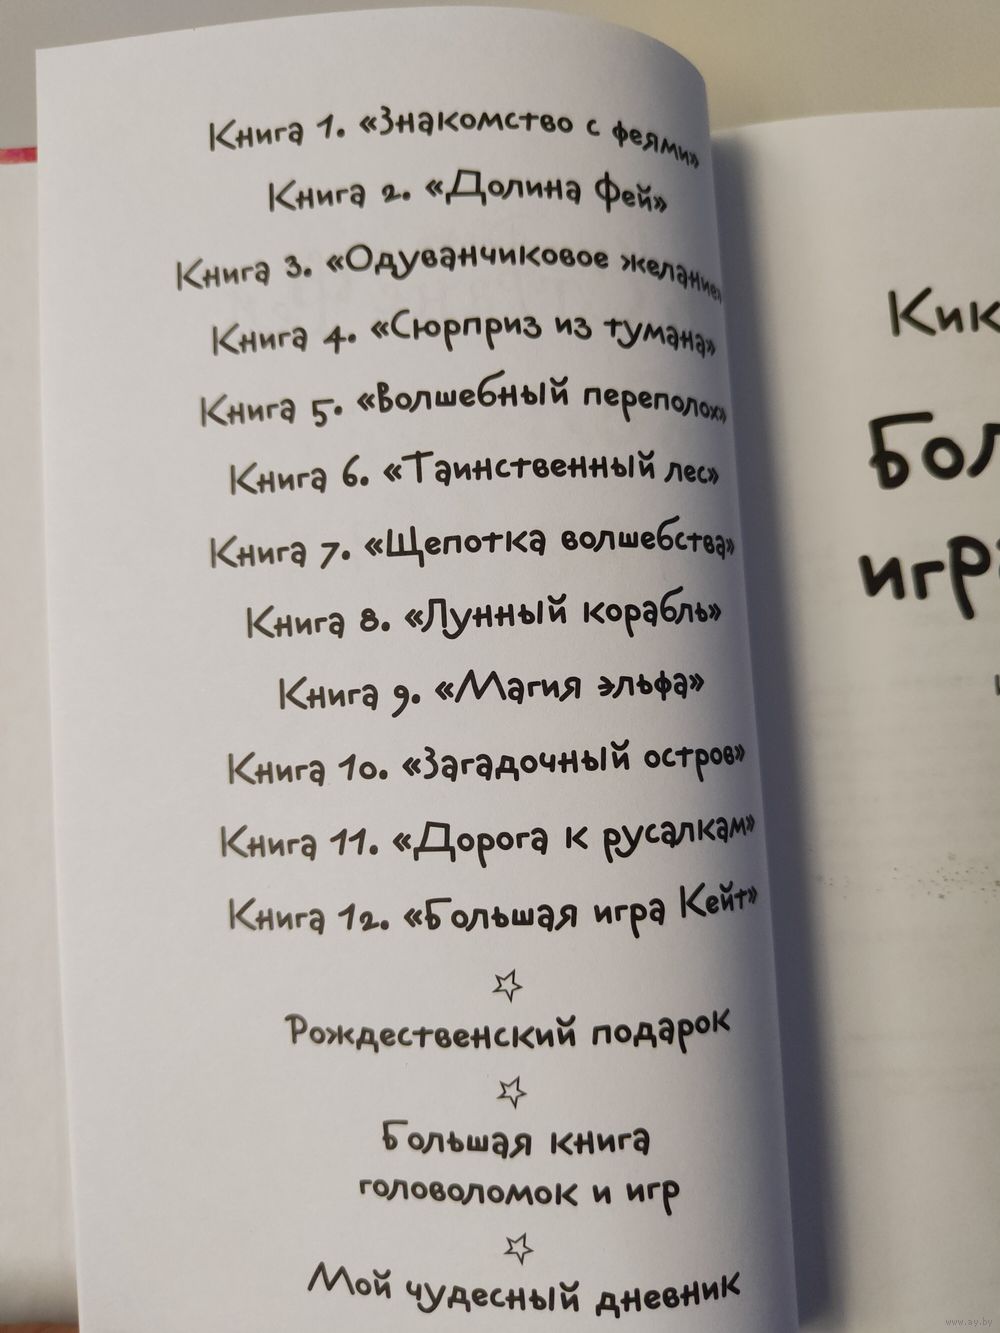 Книга 1. «Знакомство с феями»
Книга 2. «Долина фей»
Книга 3. «Одуванчиковое желание»
Книга 4. «Сюрприз из тумана»
Книга 5. «Волшебный переполох»
Книга 6. «Таинственный лес»
Книга 7. «Щепотка волшебства»
Книга 8. «Лунный корабль»
Книга 9. «Магия эльфа»
Книга 10. «Загадочный остров»
Книга 11. «Дорога к русалкам»
Книга 12. «Большая игра Кейт»
Рождественский подарок
Большая книга
головоломок и игр
Мой чудесный дневник
Кик
Бол
игра
www.ay.by